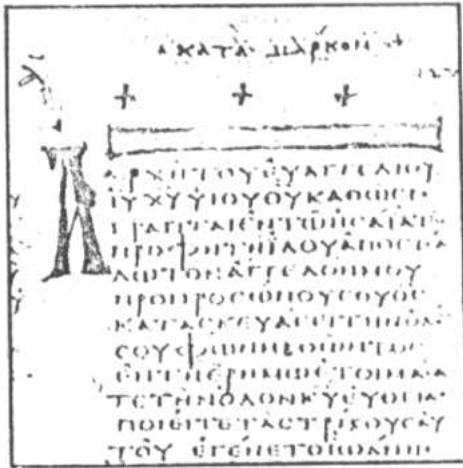 ΚΑΤΑ ΜΑΡΚΟΝ
ΑΡΧΗ ΤΟΥ ΕΥΑΓΓΕΛΙΟΥ
ΙΥ ΧΥ ΥΙΟΥ ΘΥ ΚΑΘΩϹ ΓΕ
ΓΡΑΠΤΑΙ ΕΝ ΤΩ ΗϹΑΙΑ
ΠΡΟΦΗΤΗ ΙΔΟΥ ΑΠΟϹΤΕΛ
ΛΩ ΤΟΝ ΑΓΓΕΛΟΝ ΜΟΥ
ΠΡΟ ΠΡΟϹΩΠΟΥ ϹΟΥ ΟϹ
ΚΑΤΑϹΚΕΥΑϹΕΙ ΤΗΝ ΟΔΟ
ϹΟΥ ΦΩΝΗ ΒΟΩΝΤΟϹ
ΕΝ ΤΗ ΕΡΗΜΩ ΕΤΟΙΜΑϹΑ
ΤΕ ΤΗΝ ΟΔΟΝ ΚΥ ΕΥΘΕΙΑϹ
ΠΟΙΕΙΤΕ ΤΑϹ ΤΡΙΒΟΥϹ ΑΥ
ΤΟΥ ΕΓΕΝΕΤΟ ΙΩΑΝΗϹ